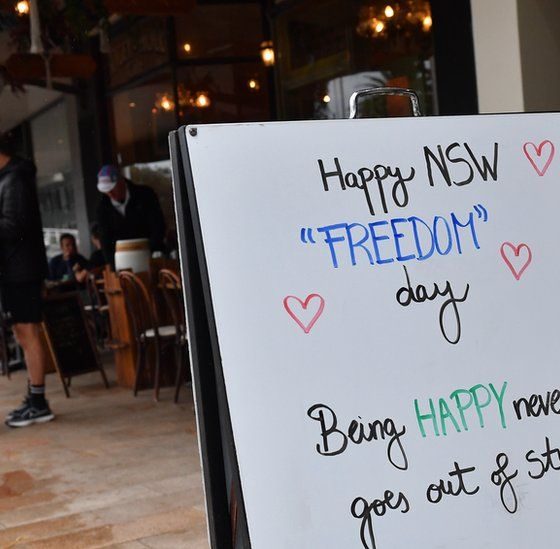 Happy NSW
“FREEDOM”
day
Being HAPPY neve
goes out of st